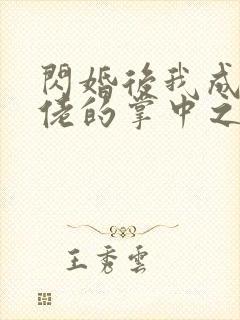 閃婚後我成
佬的掌中之
王秀雲